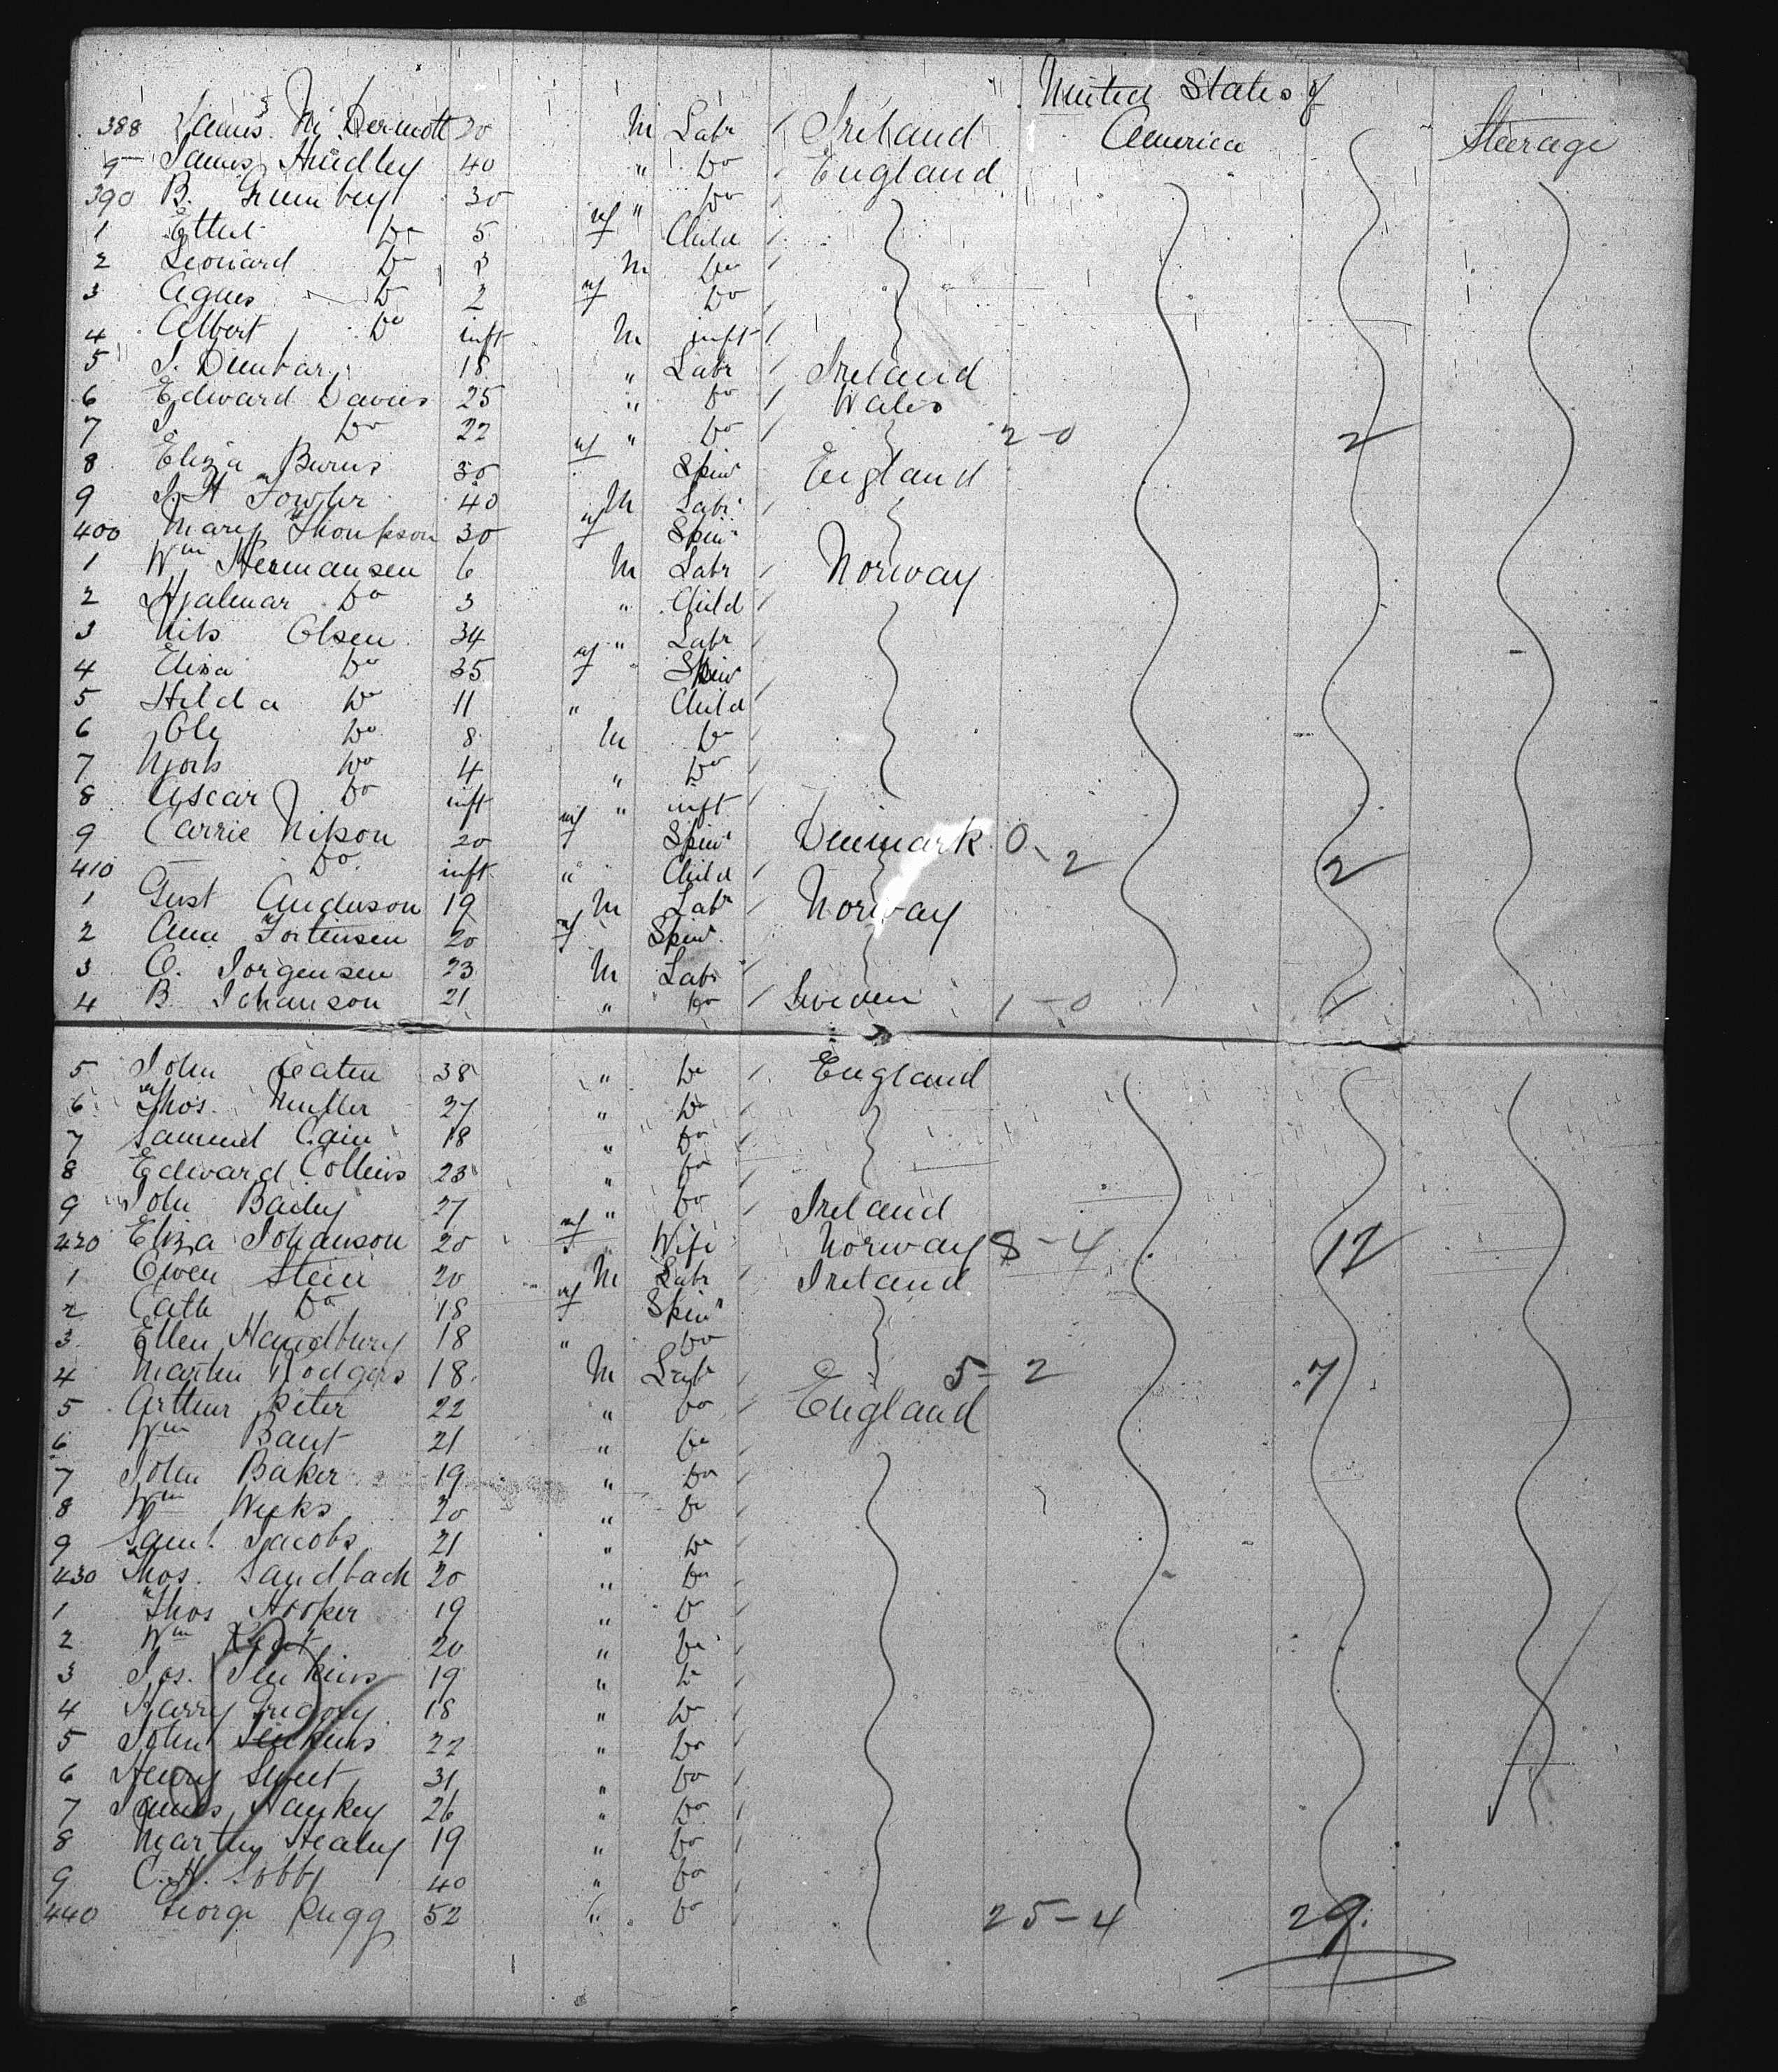 United States of
388 James Mc Dermott 20 M Labr Ireland America Steerage
9 James Hindley 40 " Do England
390 B. Grumbey 30 " Do
1 Ethel Do 5 f Child
2 Leonard Do 3 M Do
3 Agnes Do 2 f Do
4 Albert Do inft M inft
5 J. Dunbar 18 " Labr Ireland
6 Edward Davies 25 " Do Wales
7 J. Do 22 " Do 2-0 2
8 Eliza Burns 30 f Spinr England
9 J. H Fowler 40 M Labr
400 Mary Thompson 30 f Spinr
1 Wm Hermansen 6 M Labr Norway
2 Hjalmar Do 3 " Child
3 Nils Olsen 34 " Labr
4 Elisa Do 35 f Spinr
5 Hilda Do 11 " Child
6 Ole Do 8 M Do
7 Do 4 " Do
8 Oscar Do inft " inft
9 Carrie Nilson 20 f Spinr Denmark 0-2 2
410 — Do inft " Child
1 Gust Anderson 19 M Labr Norway
2 Ana Tortensen 20 f Spinr
3 O. Jorgensen 23 M Labr
4 B. Johanson 21 " Do Sweden 1-0 1
5 John Eaten 38 " Do England
6 Thos. Muller 27 " Do
7 Samuel Cain 18 " Do
8 Edward Collins 23 " Do
9 John Bailey 27 " Do Ireland
420 Eliza Johanson 20 f Wife Norway 8-4 12
1 Owen Stein 20 M Labr Ireland
2 Cath Do 18 f Spinr
3 Ellen Handbury 18 " Do
4 Martin Rodgers 18 M Labr 5-2 7
5 Arthur Peter 22 " Do England
6 Wm Bant 21 " Do
7 John Baker 19 " Do
8 Wm Weeks 20 " Do
9 Saml. Jacobs 21 " Do
430 Thos. Sandbach 20 " Do
1 Thos Hooper 19 " Do
2 Wm Kent 20 " Do
3 Jos. Jenkins 19 " Do
4 Harry Gregory 18 " Do
5 John Jenkins 22 " Do
6 Henry Sweet 31 " Do
7 James Hankey 26 " Do
8 Martin Healey 19 " Do
9 C. H. 40 " Do
440 George Rugg 52 " Do 25-4 29